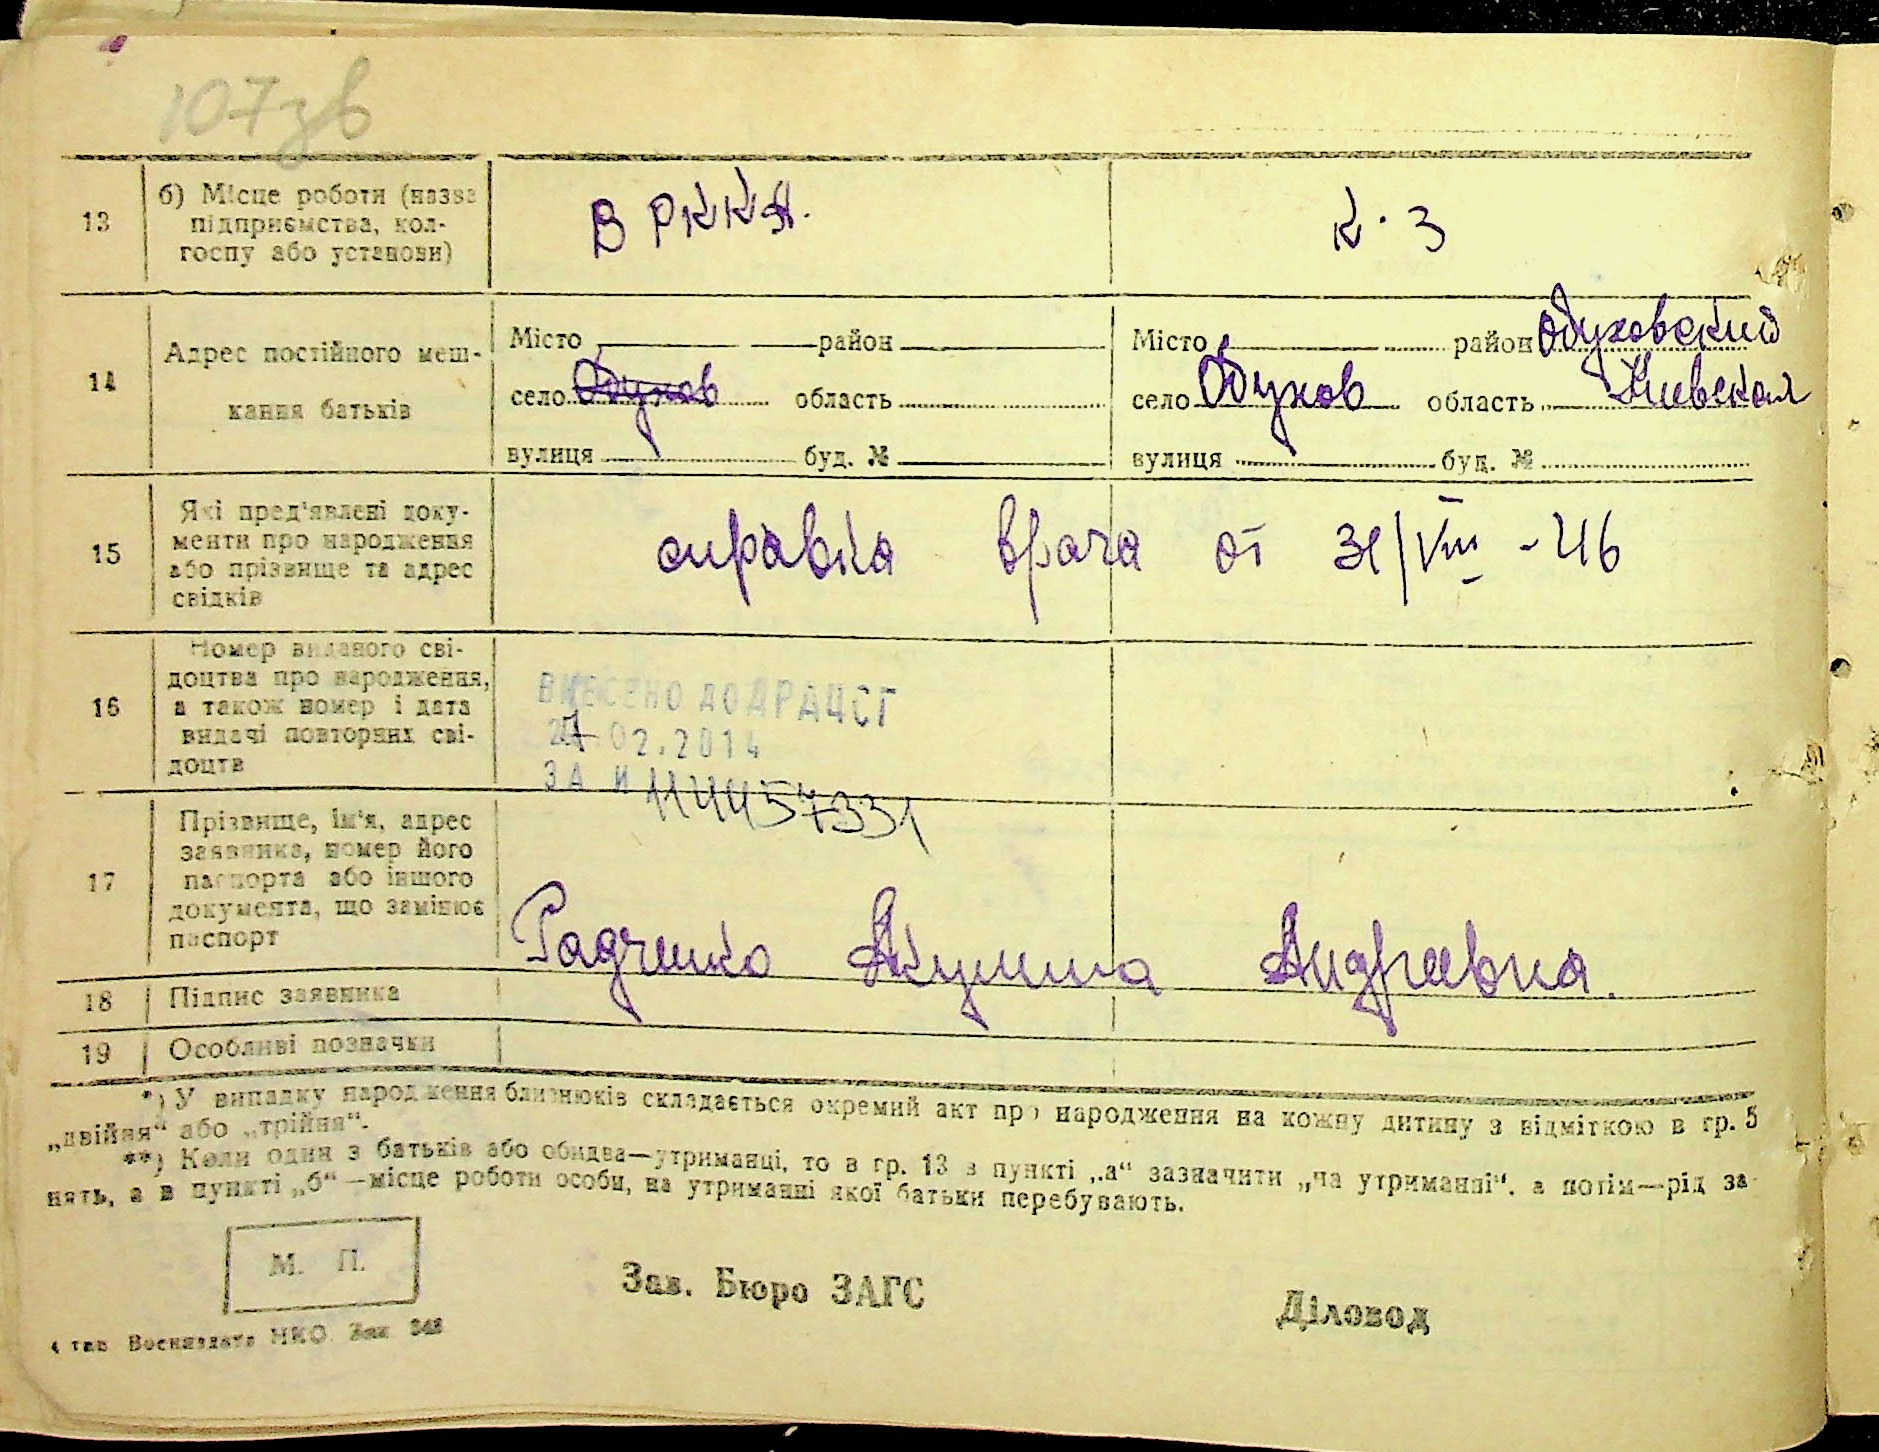 107зв
13
б) Місце роботи (назва
підприємства, кол-
госпу або установи)
В РККА.
К. З
14
Адрес постійного меш-
кання батьків
Місто район
село Обухов область
вулиця буд. №
Місто район Обуховский
село Обухов область Киевская
вулиця буд. №
15
Які пред'явлені доку-
менти про народження
або прізвище та адрес
свідків
справка врача от 31/VIII - 46
16
Номер виданого сві-
доцтва про народження,
а також номер і дата
видачі повторних сві-
доцтв
ВНЕСЕНО ДО ДРАЦСГ
02.2014
ЗА №
17
Прізвище, ім'я, адрес
заявника, номер його
паспорта або іншого
документа, що замінює
паспорт
Радченко Акулина Андреевна.
18
Підпис заявника
19
Особливі позначки
*) У випадку народження близнюків складається окремий акт про народження на кожну дитину з відміткою в гр. 5
„двійня“ або „трійня“.
**) Коли один з батьків або обидва—утриманці, то в гр. 13 в пункті „а“ зазначити „на утриманні“, а потім—рід за-
нять, а в пункті „б“—місце роботи особи, на утриманні якої батьки перебувають.
М. П.
Зав. Бюро ЗАГС
Діловод
4 тип. Воениздата НКО. Зак. 348